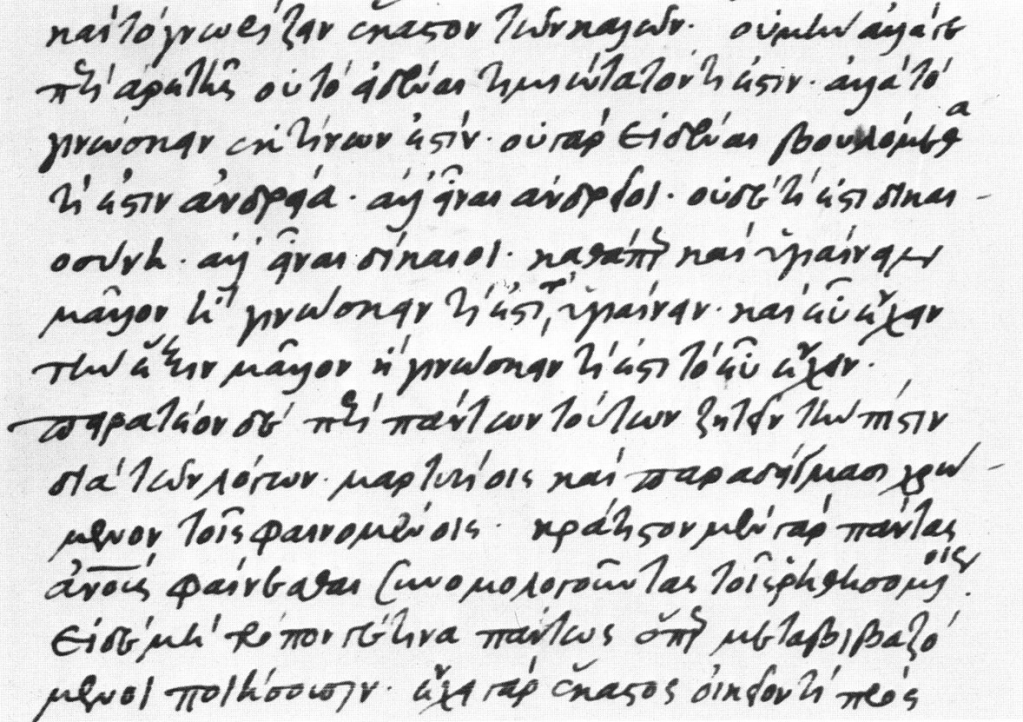 καὶ τὸ γνωρίζειν ἕκαστον τῶν καλῶν· οὐ μὴν ἀλλά γε
περὶ ἀρετῆς οὐ τὸ εἰδέναι τιμιώτατον τί ἐστιν· ἀλλὰ τὸ
γινώσκειν ἐκ τίνων ἐστίν· οὐ γὰρ εἰδέναι βουλόμεθα
τί ἐστιν ἀνδρεία· ἀλλ' εἶναι ἀνδρεῖοι· οὐδὲ τί ἐστι δικαι-
οσύνη· ἀλλ' εἶναι δίκαιοι· καθάπερ καὶ ὑγιαίνειν
μᾶλλον ἢ γινώσκειν τί ἐστι τὸ ὑγιαίνειν· καὶ εὖ ἔχειν
τὴν ἕξιν μᾶλλον ἢ γινώσκειν τί ἐστι τὸ εὖ ἔχειν·
πειρατέον δὲ περὶ πάντων τούτων ζητεῖν τὴν πίστιν
διὰ τῶν λόγων· μαρτυρίοις καὶ παραδείγμασι χρώ-
μενον τοῖς φαινομένοις· κράτιστον μὲν γὰρ πάντας
ἀνθρώπους φαίνεσθαι συνομολογοῦντας τοῖς ῥηθησομένοις.
εἰ δὲ μὴ τρόπον γέ τινα πάντως ὅπερ μεταβιβαζό
μενοι ποιήσουσιν· ἔχει γὰρ ἕκαστος οἰκεῖόν τι πρὸς